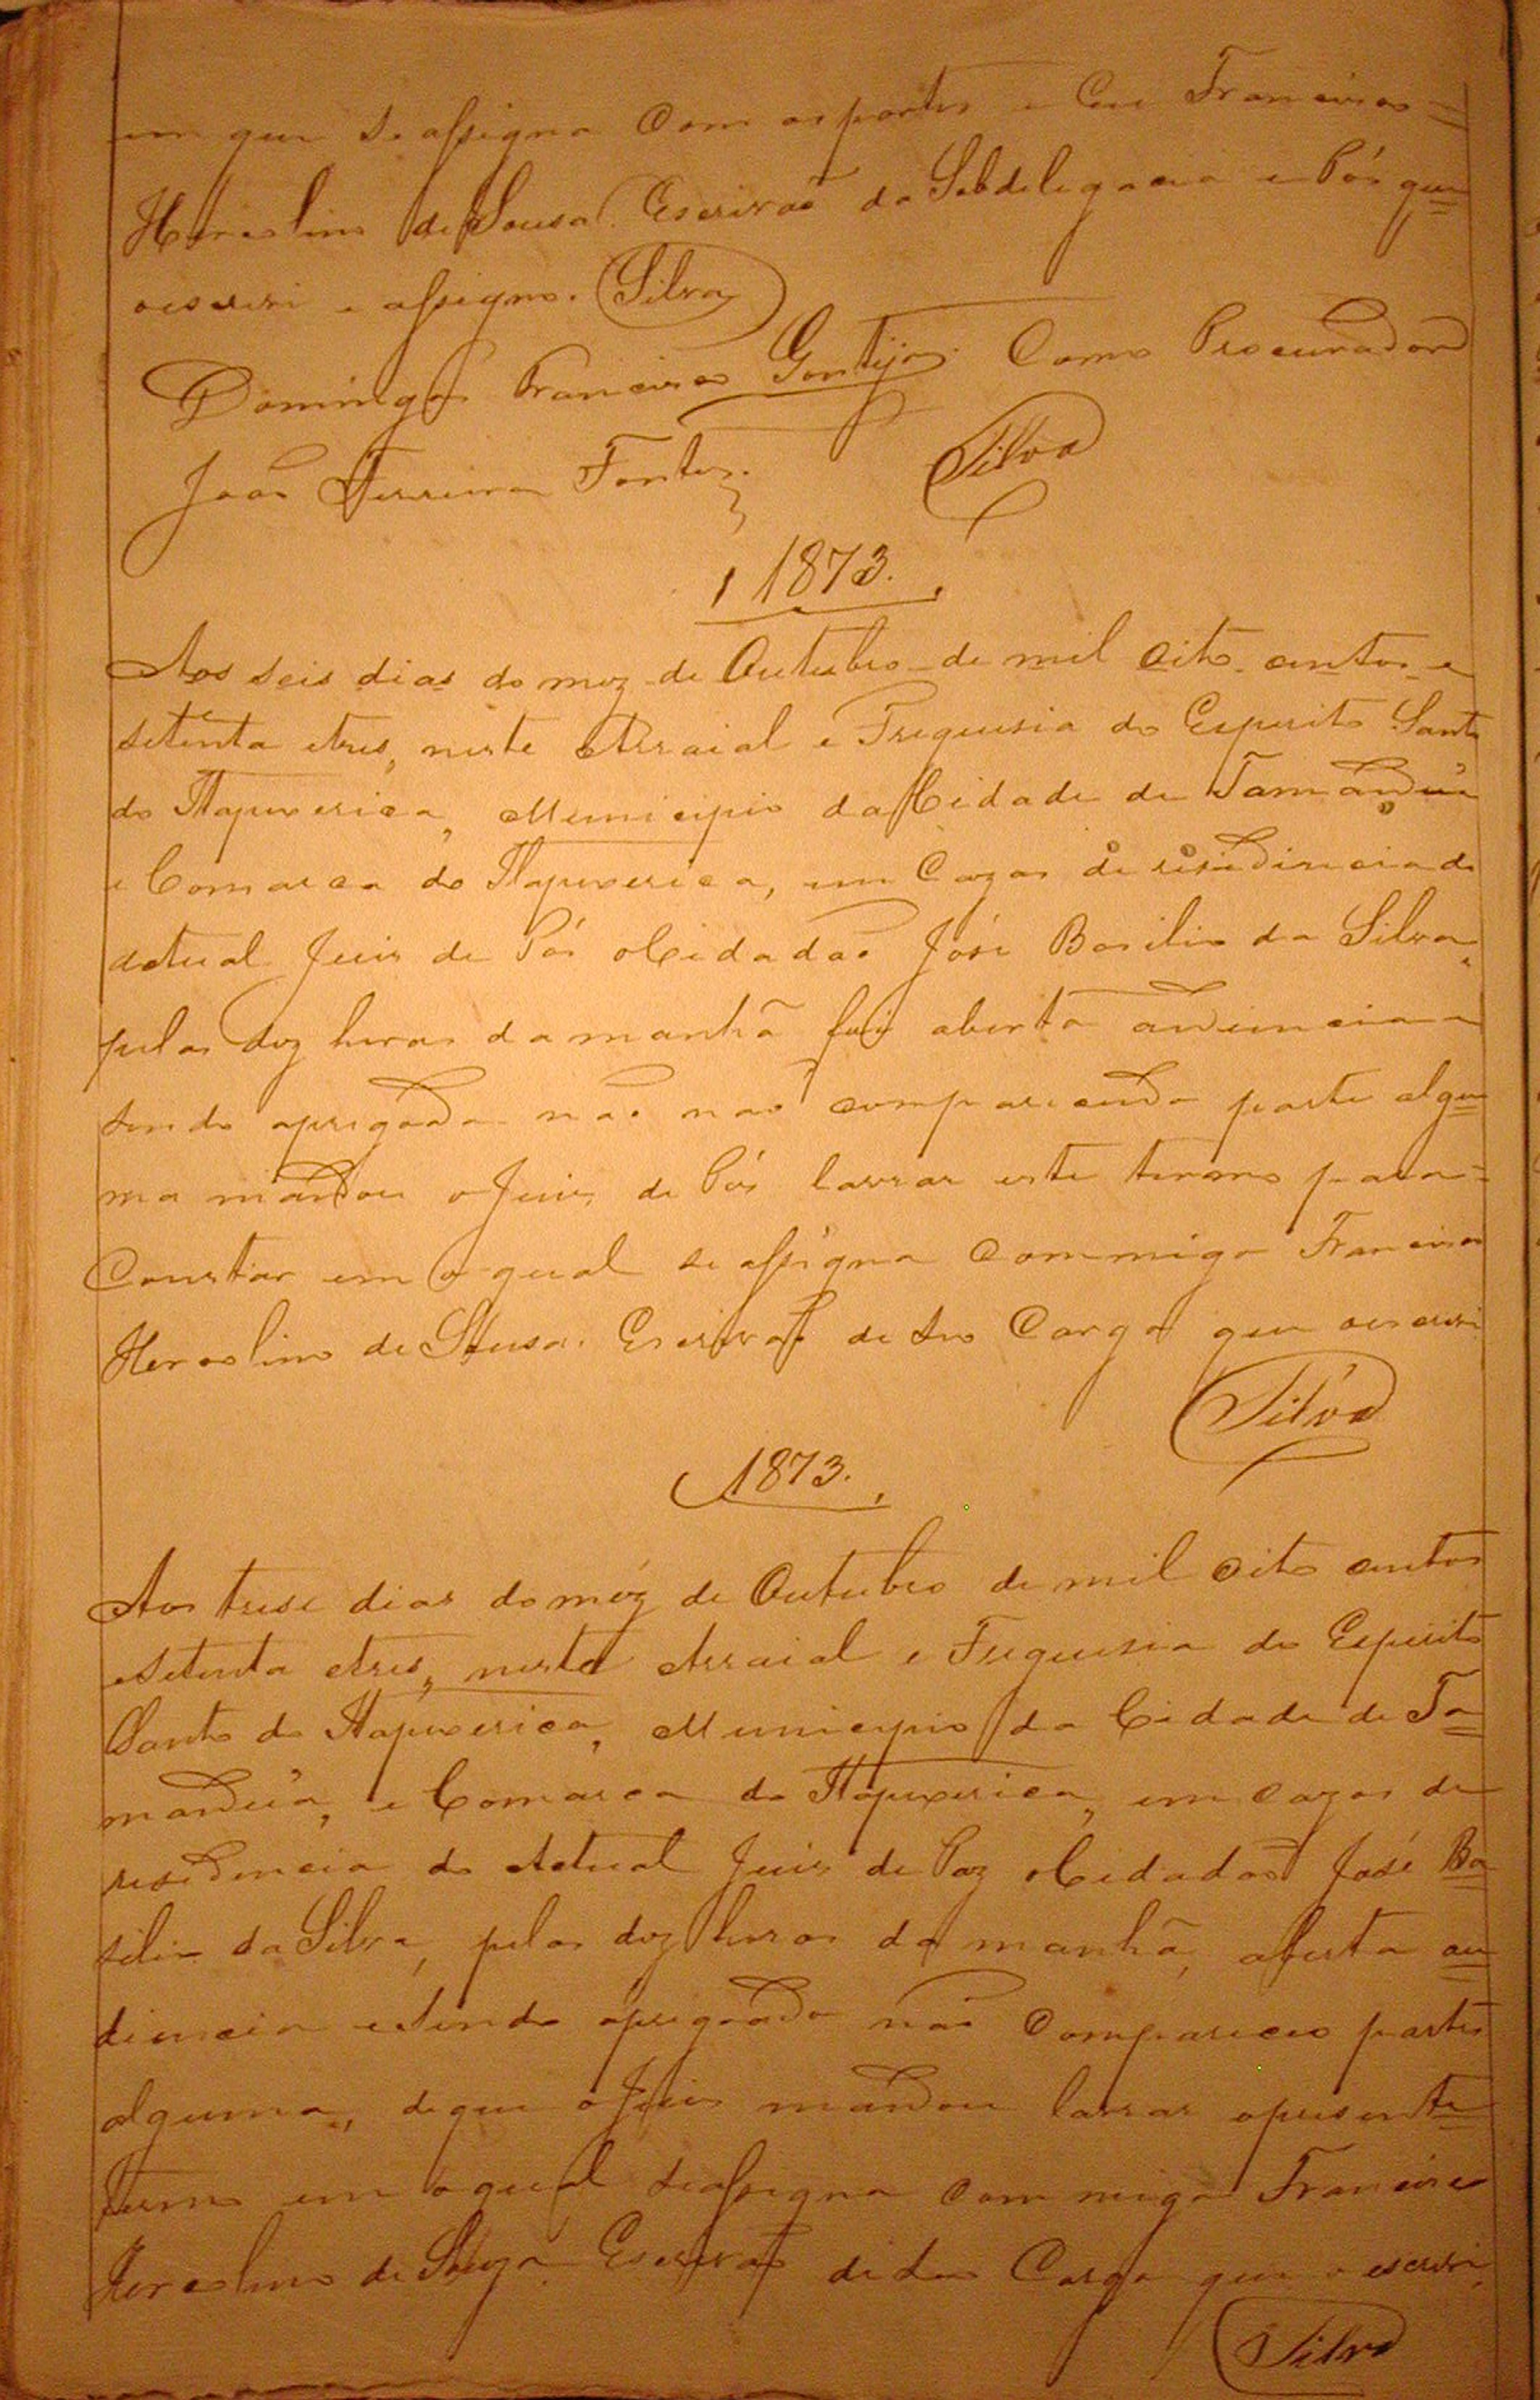 em que se assigna com as partes e Eu Francisco =
Herculino de Sousa. Escrivaõ da Subdelegacia e Pás que
o escrevi e assigno. Silva
Domingos Francisco Gontijo. Como Procurador
Joaõ Ferreira Fontes. Silva
1873.
Aos seis dias do mez de Outubro de mil oito centos e
setenta e tres, neste Arraial e Freguesia do Esperito Santo
do Itapecerica, Municipio da Cidade de Tamanduá
e Comarca do Itapecerica, em Cazas de residincia do
actual Juis de Pás o Cidadaõ José Basilio da Silva,
pelas dez horas da manhã foi aberta audiencia e
sendo apregoada naõ naõ comparecendo parte algu=
ma mandou o Juis de Pás lavrar este termo para =
Constar em o qual se assigna commigo Francisco
Herculino de Sousa. Escrivaõ de seu Cargo que o escrevi
Silva
1873.
Aos trese dias do méz de Outubro de mil oito centos
e setenta e tres, neste Arraial e Freguesia do Esperito
Santo do Itapecerica, Municipio da Cidade de Ta=
manduá, e Comarca do Itapecerica, em cazas de
residencia do Actual Juis de Paz o Cidadaõ José Ba=
silio da Silva, pelas dez horas da manhã, aberta au=
diencia e sendo apregoada naõ Compareceo partes
alguma, de que o Juis mandou lavrar o presente
termo em o qual se assigna com migo Francisco
Herculino de Souza Escrivaõ de seu Cargo que o escrevi,
Silva